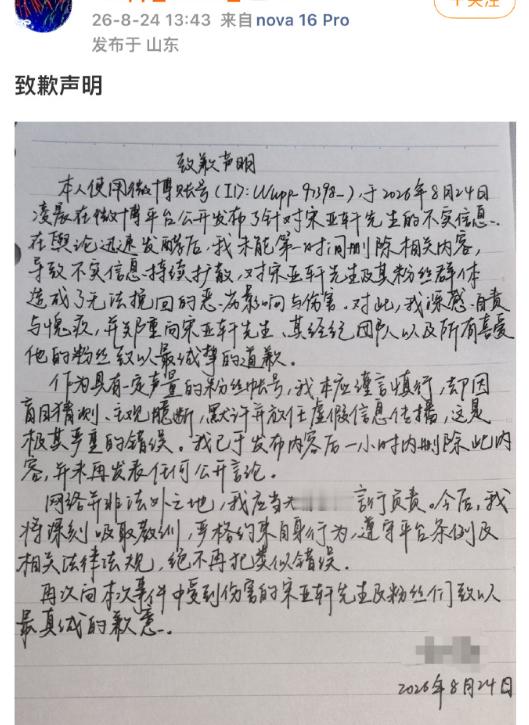 26-8-24 13:43 来自nova 16 Pro
发布于 山东
十关注
致歉声明
致歉声明
本人使用微博账号(ID:Wupp-97398-),于2026年8月24日
凌晨在微博平台公开发布了针对宋亚轩先生的不实信息。
在舆论迅速发酵后,我未能第一时间删除相关内容,
导致不实信息持续扩散,对宋亚轩先生及其粉丝群体
造成了无法挽回的恶劣影响与伤害。对此,我深感自责
与愧疚,并郑重向宋亚轩先生、其经纪团队以及所有喜爱
他的粉丝致以最诚挚的道歉。
作为具有一定声量的粉丝账号,我本应谨言慎行,却因
盲目猜测、主观臆断,默许并放任虚假信息传播,这是
极其严重的错误。我已于发布内容后一小时内删除此内
容,并未再发表任何公开言论。
网络并非法外之地,我应当 言行负责。今后,我
将深刻吸取教训,严格约束自身行为,遵守平台条例及
相关法律法规,绝不再犯类似错误。
再次向本次事件中受到伤害的宋亚轩先生及粉丝们致以
最真诚的歉意。
2026年8月24日